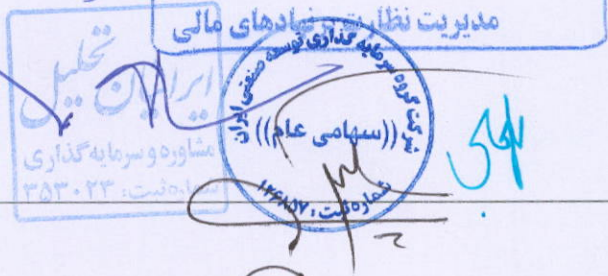 مدیریت نظارت بر نهادهای مالی
ایرانیان تحلیل
مشاوره و سرمایه گذاری
شماره ثبت: ۳۵۳۰۲۳
شرکت گروه سرمایه گذاری توسعه صنعتی ایران
((سهامی عام))
شماره ثبت: